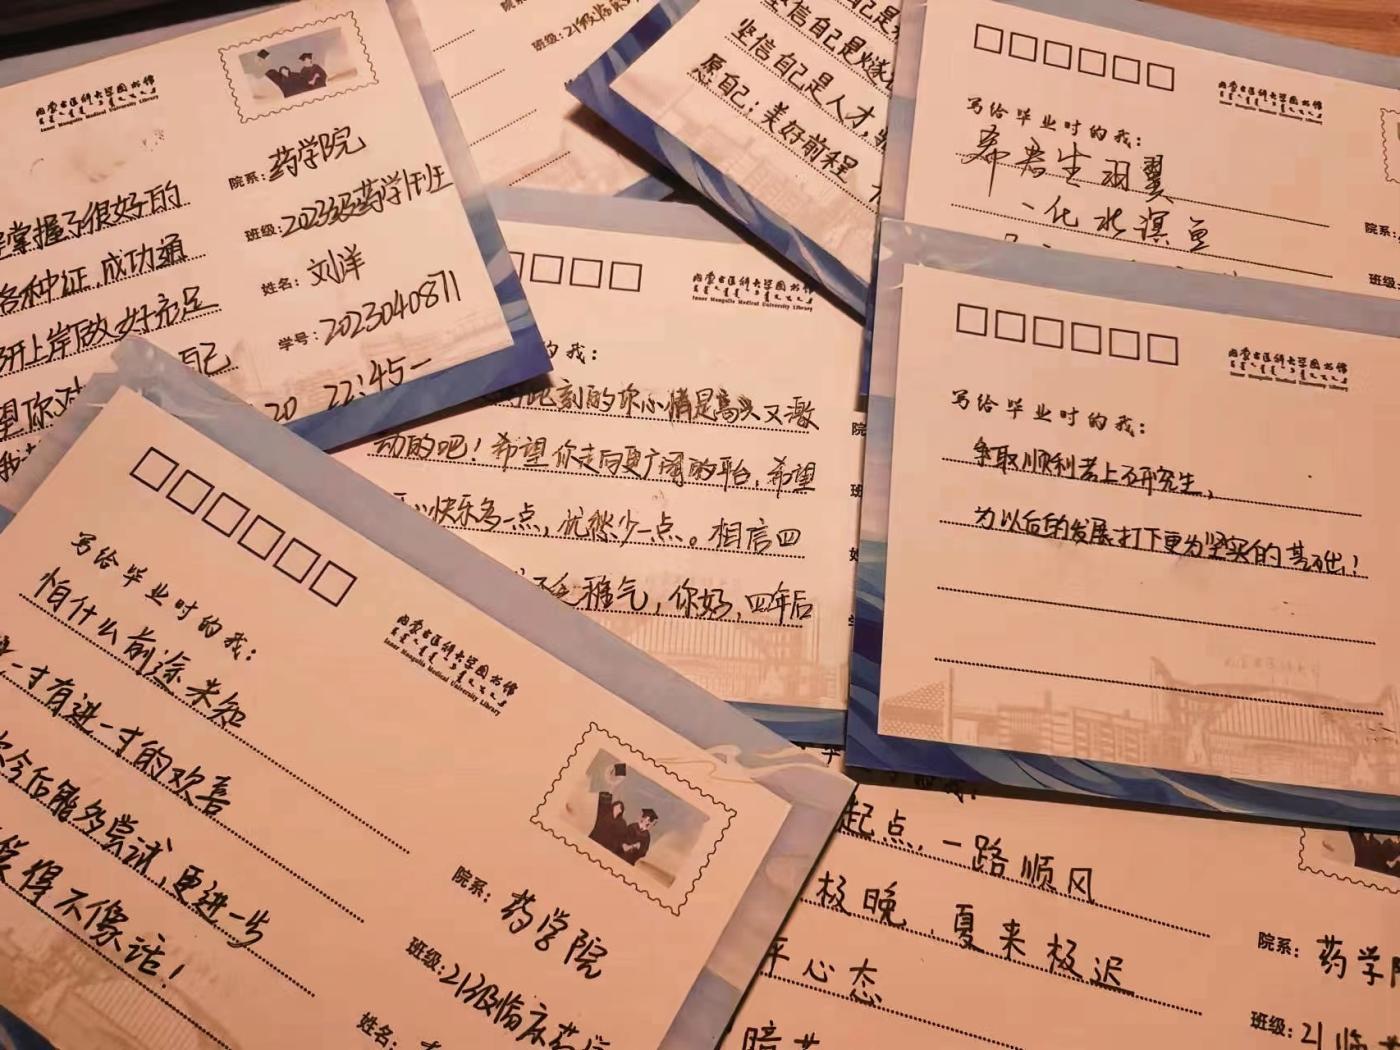 内蒙古医科大学图书馆
Inner Mongolia Medical University Library
掌握了很好的
各种证,成功通
研上岸做好充足
望你对
自己
院系:药学院
班级:2023级药学
姓名:刘洋
学号:2023040871
20 22:45
院系:
班级:21级临床
坚信自己是
坚信自己是人才,
愿自己:美好前程
写给毕业时的我:
希君生羽翼
一化北溟鱼
内蒙古医科大学图书馆
Inner Mongolia Medical University Library
院系:
班级:
内蒙古医科大学图书馆
Inner Mongolia Medical University Library
的我:
此刻的你心情是高兴又激
动的吧!希望你走向更广阔的平台,希望
快乐多一点,忧愁少一点。相信四
稚气,你好,四年后
院
班
姓
学
内蒙古医科大学图书馆
Inner Mongolia Medical University Library
写给毕业时的我:
争取顺利考上研究生,
为以后的发展打下更为坚实的基础!
写给毕业时的我:
怕什么前途未知
进一寸有进一寸的欢喜
今后能多尝试,更进一步
笑得不像话!
内蒙古医科大学图书馆
Inner Mongolia Medical University Library
院系:药学院
班级:21级临床药学
姓名:
起点,一路顺风
极晚,夏来极迟
平心态
院系:药学
班级:21临